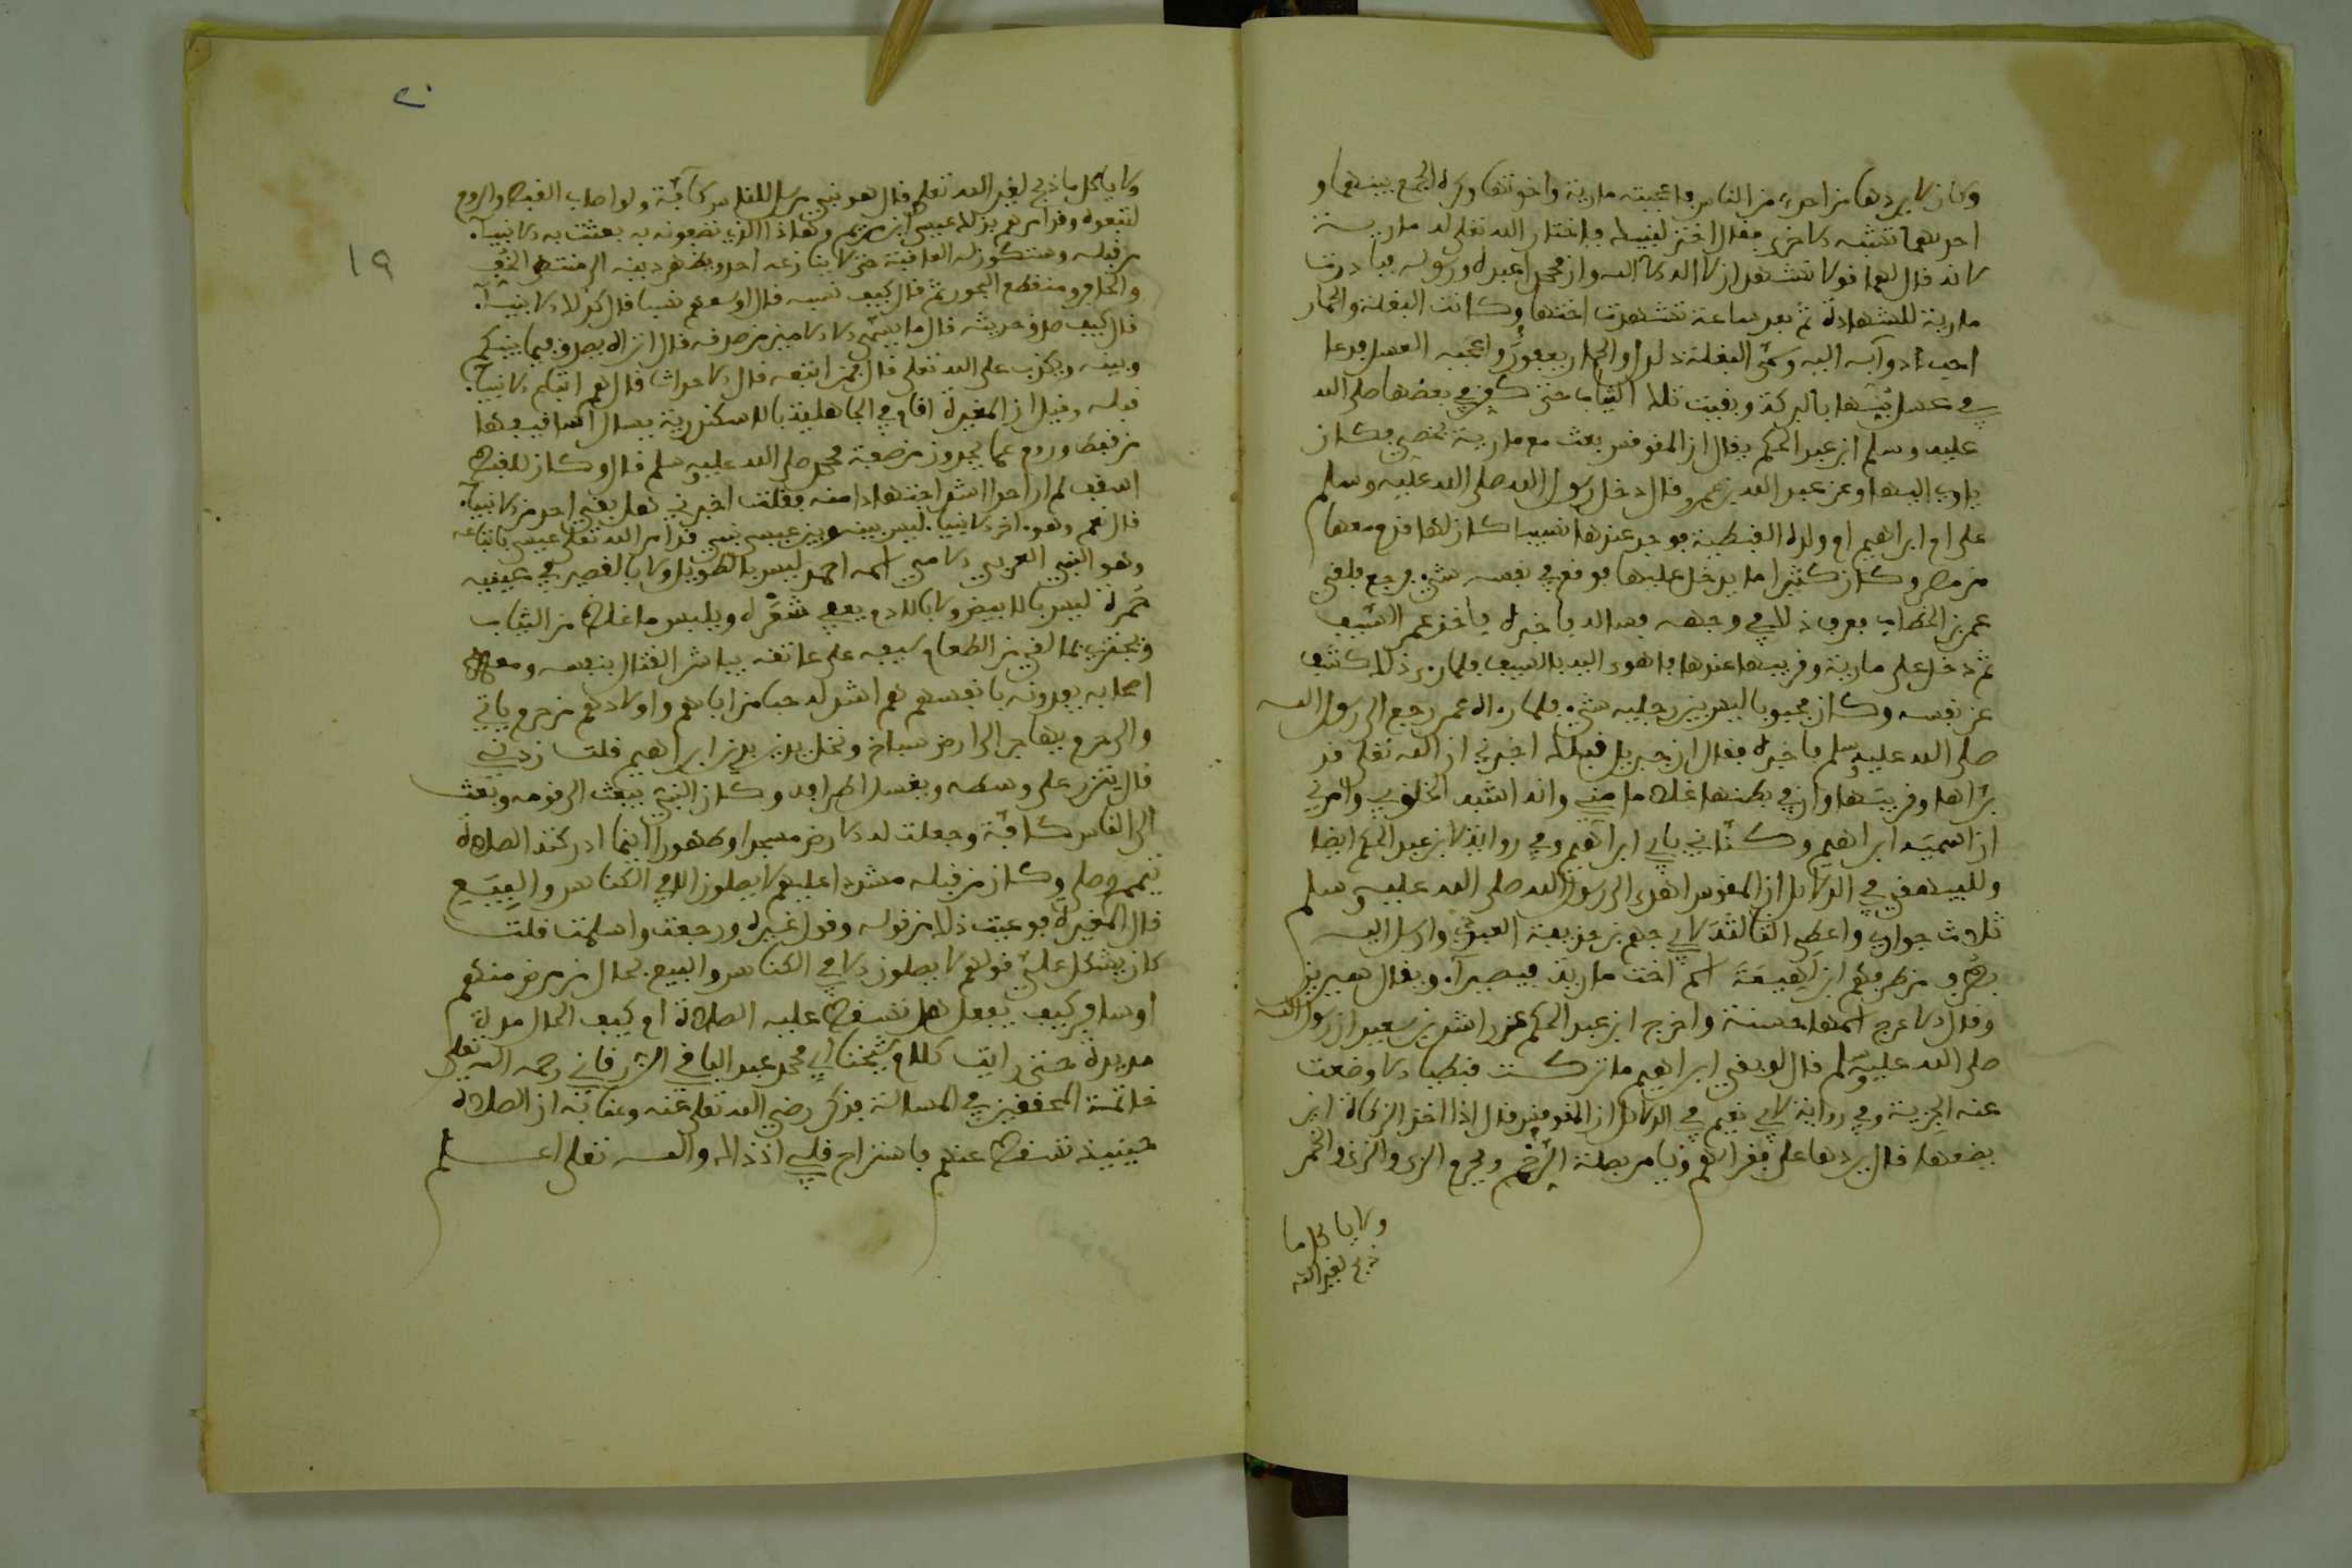 وكان لا يردها من احد من الناس فاعجبته مارية واختها وكره الجمع بينهما و
احديهما تشبه الاخرى فقال اختر لنبيك فاختار الله تعلى له مارية
لانه قال لهما قولا نشهد ان لا اله الا الله وان محمدا عبده ورسوله فبادرت
مارية للشهادة ثم بعد ساعة تشهدت اختها وكانت البغلة والحمار
احب دوابه اليه وسمى البغلة دلدلا والحمار يعفور واعجبه العسل فدعا
في عسل بنها بالبركة وبقيت تلك الثياب حتى كفن في بعضها صلى الله
عليه وسلم ابن عبد الحكم يقال ان المقوقس بعث مع مارية بخصي فكان
ياوي اليها وعن عبد الله بن عمرو قال دخل رسول الله صلى الله عليه وسلم
على ام ابراهيم ام ولده القبطية فوجد عندها نسيبا كان لها قدم معها
من مصر وكان كثيرا ما يدخل عليها فوقع في نفسه شيء فرجع فلقي
عمر بن الخطاب فعرف ذلك في وجهه فساله فاخبره فاخذ عمر السيف
ثم دخل على مارية وقريبها عندها فاهوى اليه بالسيف فلما راى ذلك كشف
عن نفسه وكان مجبوبا ليس بين رجليه شيء فلما راه عمر رجع الى رسول الله
صلى الله عليه وسلم فاخبره فقال ان جبريل قبلك اخبرني ان الله تعلى قد
براها وقريبها وان في بطنها غلاما مني وانه اشبه الخلق بي وامرني
ان اسميه ابراهيم وكناني بابي ابراهيم وفي رواية لابن عبد الحكم ايضا
وللبيهقي في الدلائل ان المقوقس اهدى الى رسول الله صلى الله عليه وسلم
ثلاث جواري واعطى الثالثة لابي جهم بن حذيفة العبدي وارسل اليه
بطرف من طرفهم ابن لهيعة اسم اخت مارية قيصرا ويقال سيرين
وقال الاعرج اسمها حسنة واخرج ابن عبد الحكم عن راشد بن سعد ان رسول الله
صلى الله عليه وسلم قال لو بقي ابراهيم ما تركت قبطيا الا وضعت
عنه الجزية وفي رواية لابي نعيم في الدلائل ان المقوقس قال اذا اخذ الزكاة اين
يضعها قال يردها على فقرائهم ويامر بصلة الرحم ويحرم الربى والزنى والخمر
ولا ياكل ما
ذبح لغير الله
٢٠
١٩
ولا ياكل ما ذبح لغير الله تعلى قال هو نبي مرسل للناس كافة ولو اصاب القبط والروم
لتبعوه وقد امرهم بذلك عيسى ابن مريم وهذا الذي تصفونه به بعثت به الانبياء
من قبله وستكون له العاقبة حتى لا ينازعه احد ويظهر دينه الى منتهى الخف
والحافر ومنقطع البحور ثم قال كيف نسبه قال اوسطهم نسبا قال كذلك الانبياء
قال كيف صدق حديثه قال ما يسمى الا الامين من صدقه قال اتراه يصدق فيما بينكم
وبينه ويكذب على الله تعلى قال فمن اتبعه قال الاحداث قال هم اتباع الانبياء
قبله وقيل ان المغيرة اقام في الجاهلية بالاسكندرية يسال اساقيفها
من قبط وروم عما يجدون من صفة محمد صلى الله عليه وسلم قال وكان للقبط
اسقف لم ار احدا اشد اجتهادا منه فقلت اخبرني هل بقي احد من الانبياء
قال نعم وهو اخر الانبياء ليس بينه وبين عيسى نبي قد امر الله تعلى عيسى باتباعه
وهو النبي العربي الامي اسمه احمد ليس بالطويل ولا بالقصير في عينيه
حمرة ليس بالابيض ولا بالادم يعفي شعره ويلبس ما غلظ من الثياب
ويجتزي بما لقي من الطعام سيفه على عاتقه يباشر القتال بنفسه ومعه
اصحابه يفدونه بانفسهم هم اشد له حبا من ابائهم واولادهم من حرم ياتي
والى حرم يهاجر الى ارض سباخ ونخل يدين بدين ابراهيم قلت زدني
قال يتزر على وسطه ويغسل اطرافه وكان النبي يبعث الى قومه وبعث
الى الناس كافة وجعلت له الارض مسجدا وطهورا اينما ادركته الصلاة
تيمم وصلى وكان من قبله مشددا عليهم لا يصلون الا في الكنائس والبيع
قال المغيرة فوعيت ذلك من قوله وقول غيره ورجعت واسلمت قلت
كان يشكل علي قولهم لا يصلون الا في الكنائس والبيع بحال من مرض منهم
او سافر كيف يفعل هل تسقط عليه الصلاة ام كيف الحال مدة
مديدة حتى رايت كلام شيخنا ابي محمد عبد الباقي الزرقاني رحمه الله تعلى
خاتمة المحققين في المسالة فذكر رضي الله تعلى عنه وعنا به ان الصلاة
حينيذ تسقط عنهم فاستراح قلبي اذ ذاك والله تعلى اعلم